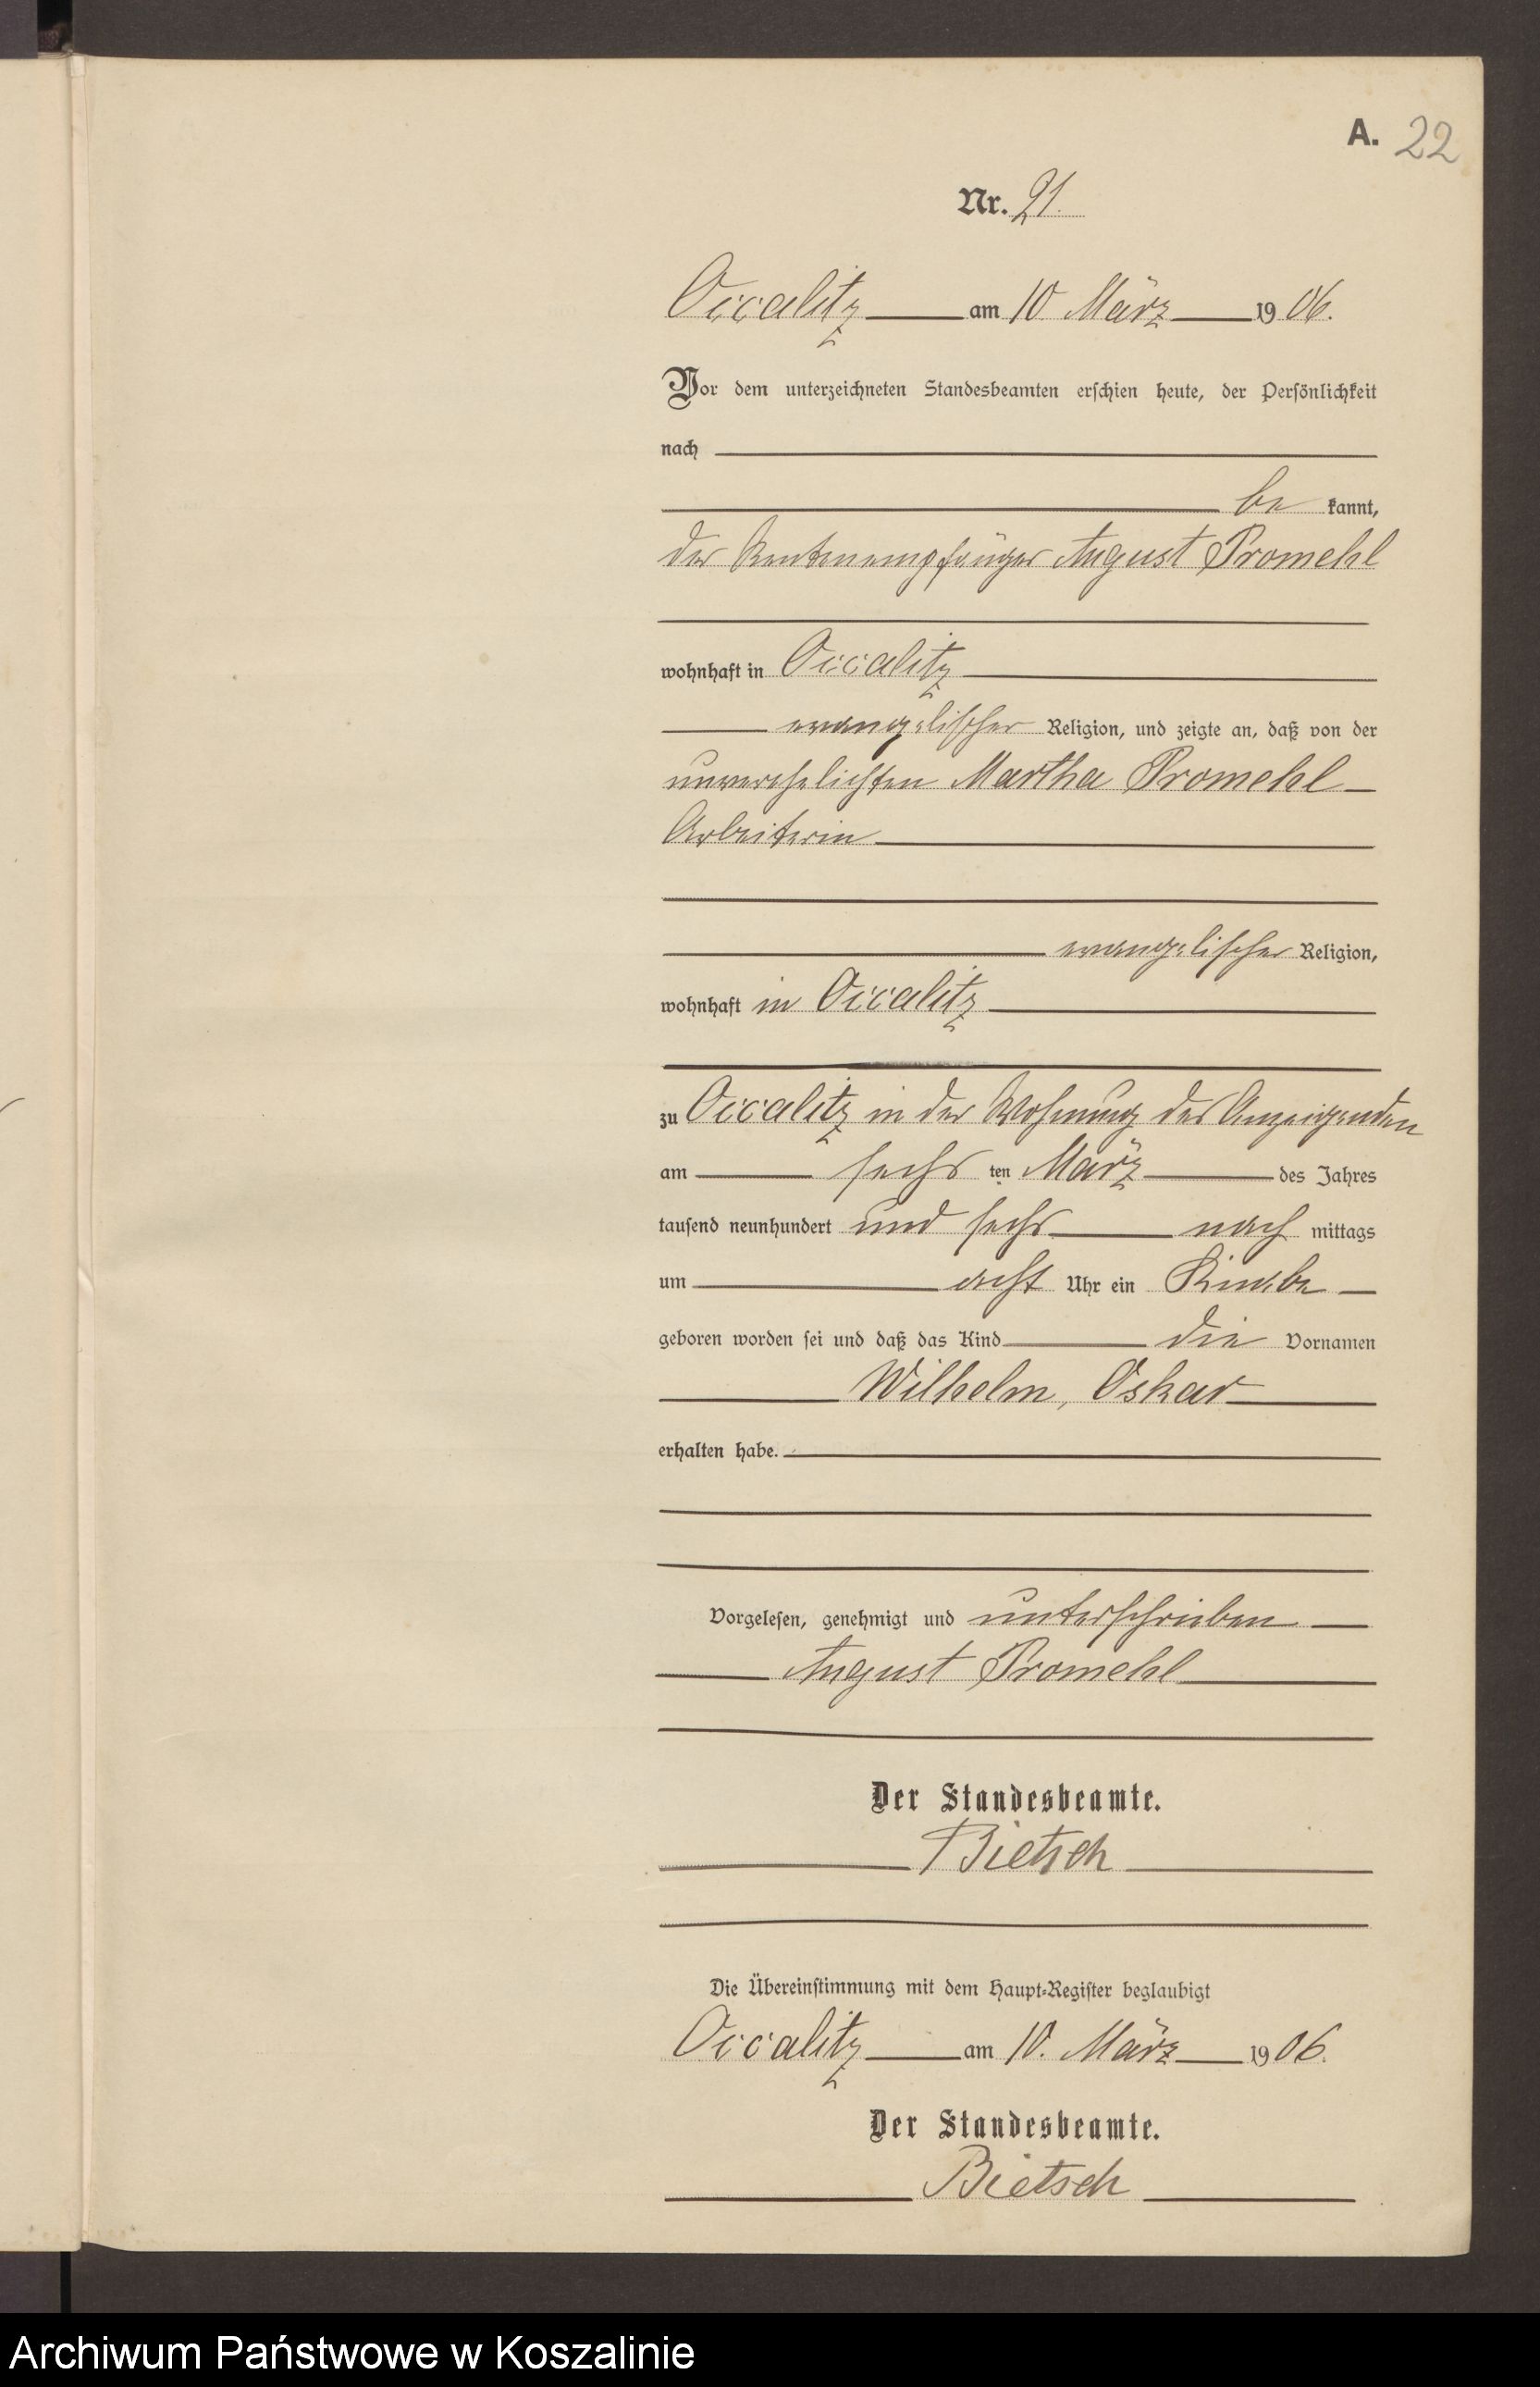 A. 22
Nr. 21.
Occalitz am 10 März 1906.
Vor dem unterzeichneten Standesbeamten erschien heute, der Persönlichkeit
nach
be kannt,
der Rentenempfänger August Promehl
wohnhaft in Occalitz
evangelischer Religion, und zeigte an, daß von der
unverehelichten Martha Promehl
Arbeiterin
evangelischer Religion,
wohnhaft in Occalitz
zu Occalitz in der Wohnung des Anzeigenden
am sechs ten März des Jahres
tausend neunhundert und sechs nach mittags
um acht Uhr ein Knabe
geboren worden sei und daß das Kind die Vornamen
Wilhelm, Oskar
erhalten habe.
Vorgelesen, genehmigt und unterschrieben
August Promehl
Der Standesbeamte.
Bietsch
Die Übereinstimmung mit dem Haupt-Register beglaubigt
Occalitz am 10. März 1906.
Der Standesbeamte.
Bietsch
Archiwum Państwowe w Koszalinie